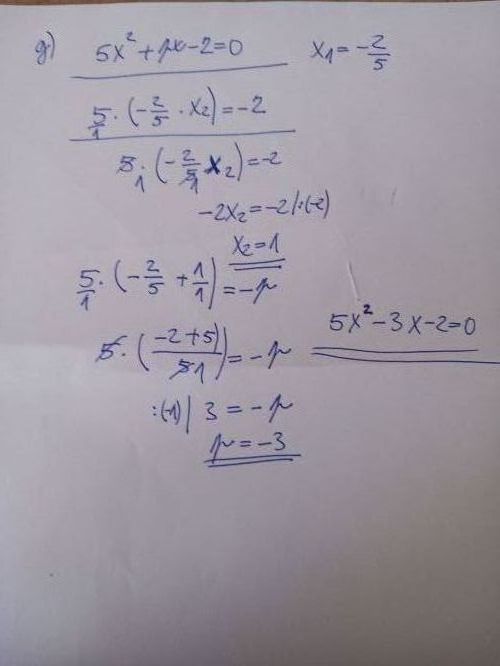 g) 5x² + px - 2 = 0    x₁ = -2/5
5/1 · (-2/5 · x₂) = -2
5 · 1 (-2/51 x₂) = -2
-2x₂ = -2 /:(-2)
x₂ = 1
5/1 · (-2/5 + 1/1) = -p
5 · ((-2+5)/51) = -p
5x² - 3x - 2 = 0
:(-1) | 3 = -p
p = -3